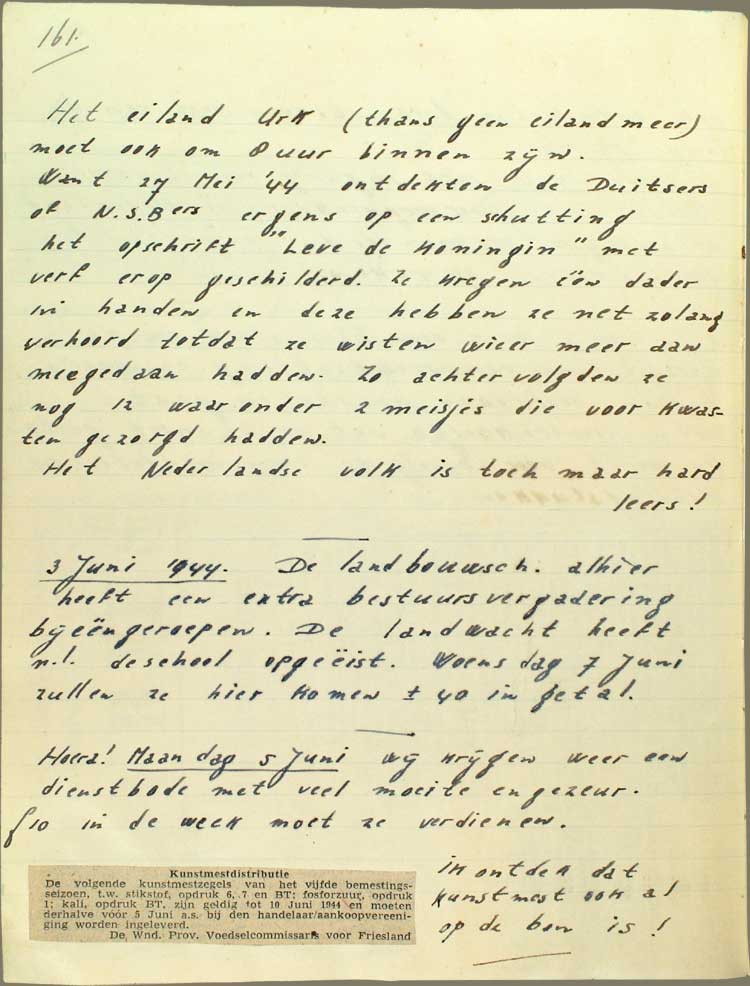 161.
Het eiland Urk (thans geen eiland meer)
moet ook om 8 uur binnen zijn.
Want 27 Mei '44 ontdekten de Duitsers
of N.S.Bers ergens op een schutting
het opschrift "Leve de Koningin" met
verf erop geschilderd. Ze kregen één dader
in handen en deze hebben ze net zolang
verhoord totdat ze wisten wie er meer aan
meegedaan hadden. Zo achtervolgden ze
nog 12 waaronder 2 meisjes die voor kwas-
ten gezorgd hadden.
Het Nederlandse volk is toch maar hard
leers!
3 Juni 1944. De landbouwsch. alhier
heeft een extra bestuursvergadering
bijeëngeroepen. De landwacht heeft
n.l. de school opgeëist. Woensdag 7 Juni
zullen ze hier komen ± 40 in getal.
Hoera! Maandag 5 Juni wij krijgen weer een
dienstbode met veel moeite en gezeur.
f 10 in de week moet ze verdienen.
Kunstmestdistributie
De volgende kunstmestzegels van het vijfde bemestings-
seizoen, t.w. stikstof, opdruk 6, 7 en BT; fosforzuur, opdruk
1; kali, opdruk BT, zijn geldig tot 10 Juni 1944 en moeten
derhalve vóór 5 Juni a.s. bij den handelaar/aankoopvereeni-
ging worden ingeleverd.
De Wnd. Prov. Voedselcommissaris voor Friesland
ik ontdek dat
kunstmest ook al
op de bon is!